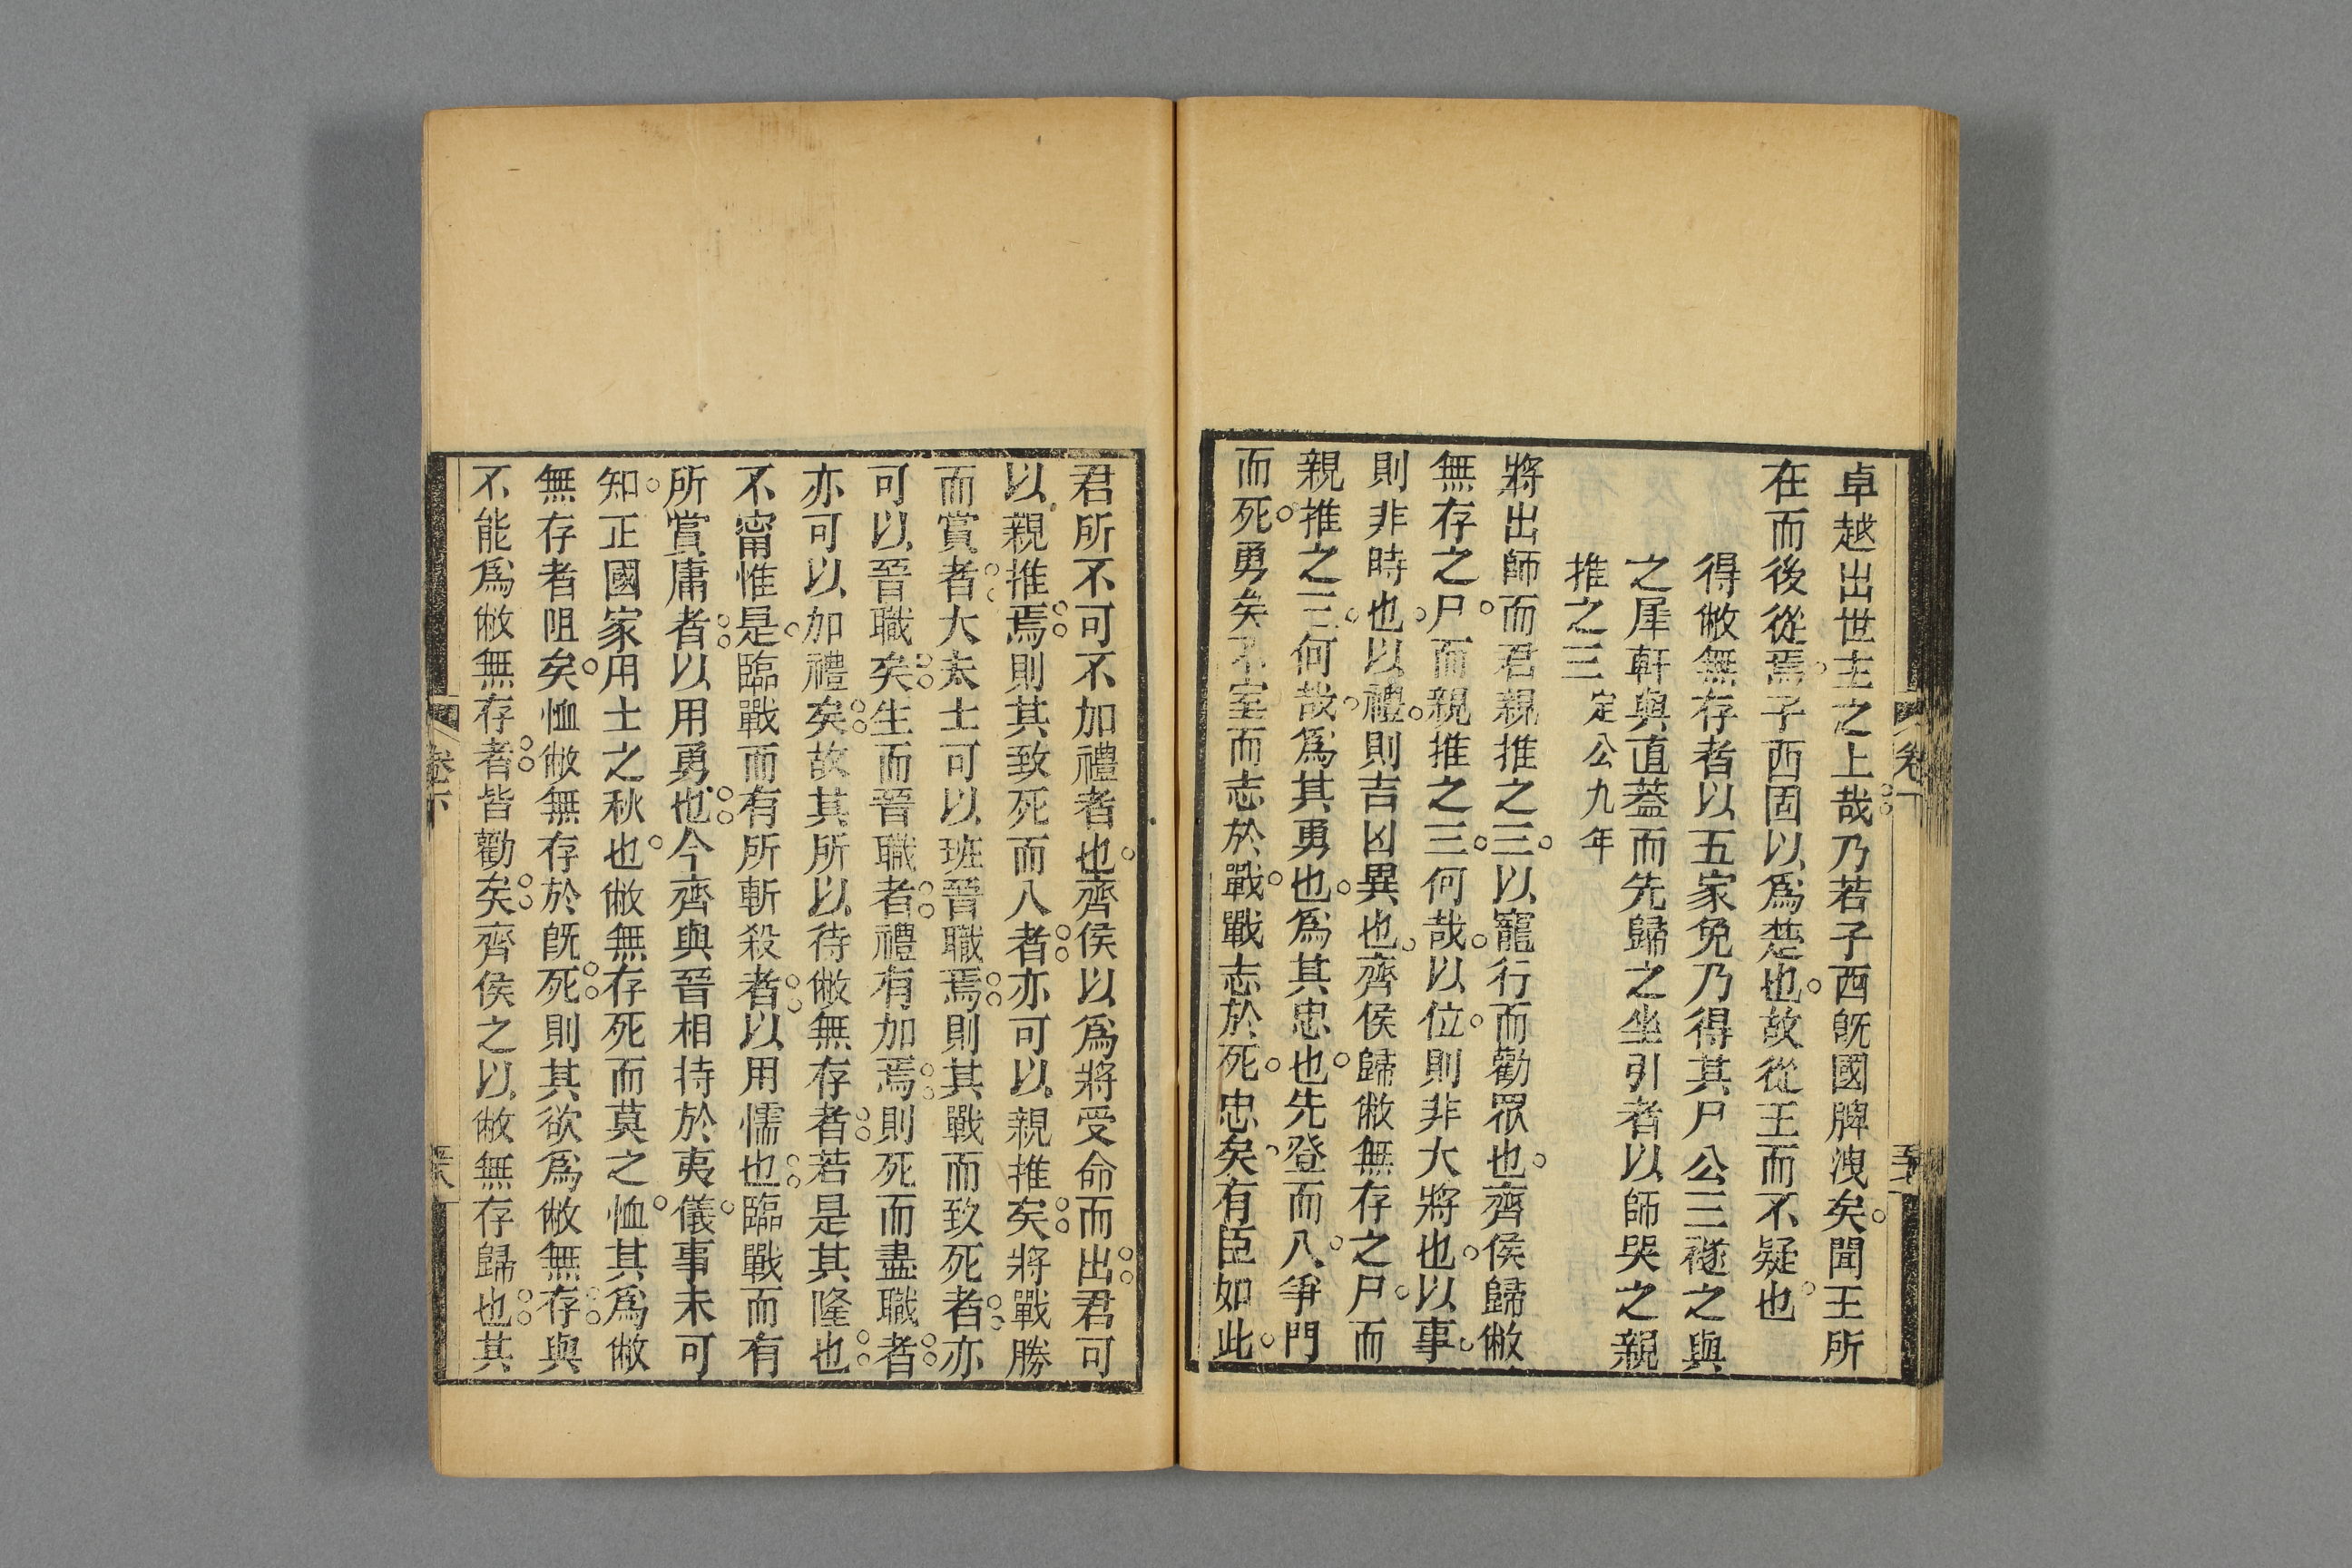 卓越出世主之上哉乃若子西旣國脾洩矣聞王所
在而後從焉子西固以爲楚也故從王而不疑也
得敝無存者以五家免乃得其尸公三襚之與
之犀軒與直蓋而先歸之坐引者以師哭之親
推之三定公九年
將出師而君親推之三以寵行而勸眾也齊侯歸敝
無存之尸而親推之三何哉以位則非大將也以事
則非時也以禮則吉凶異也齊侯歸敝無存之尸而
親推之三何哉爲其勇也爲其忠也先登而入爭門
而死勇矣不室而志於戰戰志於死忠矣有臣如此
君所不可不加禮者也齊侯以爲將受命而出君可
以親推焉則其致死而入者亦可以親推矣將戰勝
而賞者大夫士可以班晉職焉則其戰而致死者亦
可以晉職矣生而晉職者禮有加焉則死而盡職者
亦可以加禮矣故其所以待敝無存者若是其隆也
不甯惟是臨戰而有所斬殺者以用懦也臨戰而有
所賞庸者以用勇也今齊與晉相持於夷儀事未可
知正國家用士之秋也敝無存死而莫之恤其爲敝
無存者阻矣恤敝無存於旣死則其欲爲敝無存與
不能爲敝無存者皆勸矣齊侯之以敝無存歸也其
卷下